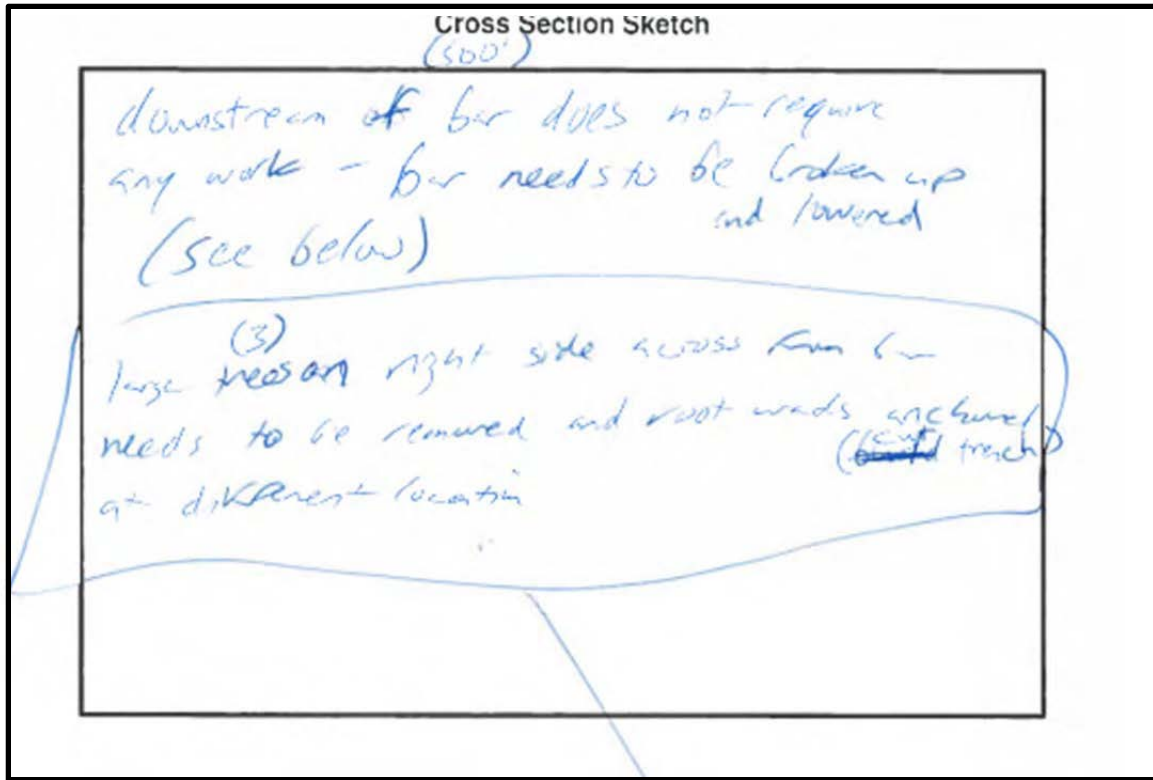 Cross Section Sketch
(500')
downstream of bar does not require
any work - bar needs to be broken up
and lowered
(see below)
(3)
large trees on right side across from bar
needs to be removed and root wads anchored
(cut trench)
at different location